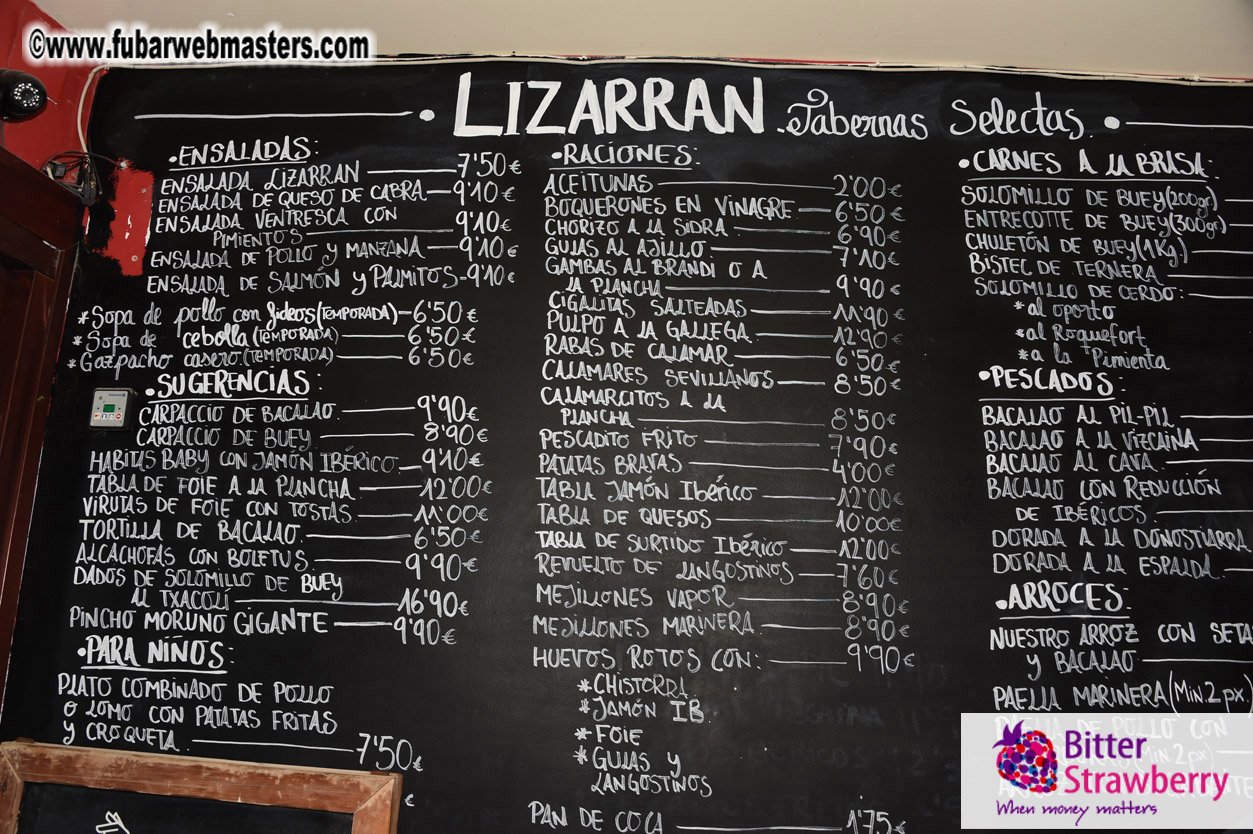 ©www.fubarwebmasters.com
LIZARRAN Tabernas Selectas
ENSALADAS:
ENSALADA LIZARRAN 7'50€
ENSALADA DE QUESO DE CABRA 9'10€
ENSALADA VENTRESCA CON
PIMIENTOS 9'10€
ENSALADA DE POLLO Y MANZANA 9'10€
ENSALADA DE SALMÓN Y PALMITOS 9'10€
*Sopa de pollo con fideos (TEMPORADA) 6'50€
*Sopa de cebolla (TEMPORADA) 6'50€
*Gazpacho casero (TEMPORADA) 6'50€
SUGERENCIAS:
CARPACCIO DE BACALAO 9'90€
CARPACCIO DE BUEY 8'90€
HABITAS BABY CON JAMÓN IBÉRICO 9'10€
TABLA DE FOIE A LA PLANCHA 12'00€
VIRUTAS DE FOIE CON TOSTAS 11'00€
TORTILLA DE BACALAO 6'50€
ALCACHOFAS CON BOLETUS 9'90€
DADOS DE SOLOMILLO DE BUEY
AL TXACOLI 16'90€
PINCHO MORUNO GIGANTE 9'90€
PARA NIÑOS:
PLATO COMBINADO DE POLLO
O LOMO CON PATATAS FRITAS
Y CROQUETA 7'50€
€
RACIONES:
ACEITUNAS 2'00€
BOQUERONES EN VINAGRE 6'50€
CHORIZO A LA SIDRA 6'90€
GULAS AL AJILLO 7'10€
GAMBAS AL BRANDI O A
LA PLANCHA 9'90€
CIGALITAS SALTEADAS 11'90€
PULPO A LA GALLEGA 12'90€
RABAS DE CALAMAR 6'50€
CALAMARES SEVILLANOS 8'50€
CALAMARCITOS A LA
PLANCHA 8'50€
PESCADITO FRITO 7'90€
PATATAS BRAVAS 4'00€
TABLA JAMÓN IBÉRICO 12'00€
TABLA DE QUESOS 10'00€
TABLA DE SURTIDO IBÉRICO 12'00€
REVUELTO DE LANGOSTINOS 7'60€
MEJILLONES VAPOR 8'90€
MEJILLONES MARINERA 8'90€
HUEVOS ROTOS CON: 9'90€
*CHISTORRA
*JAMÓN IB.
*FOIE
*GULAS Y
LANGOSTINOS
PAN DE COCA 1'75€
CARNES A LA BRASA:
SOLOMILLO DE BUEY (200gr)
ENTRECOTTE DE BUEY (300gr)
CHULETÓN DE BUEY (1Kg)
BISTEC DE TERNERA
SOLOMILLO DE CERDO:
*al oporto
*al Roquefort
*a la Pimienta
PESCADOS:
BACALAO AL PIL-PIL
BACALAO A LA VIZCAINA
BACALAO AL CAVA
BACALAO CON REDUCCIÓN
DE IBÉRICOS
DORADA A LA DONOSTIARRA
DORADA A LA ESPALDA
ARROCES:
NUESTRO ARROZ CON SETAS
Y BACALAO
PAELLA MARINERA (Min. 2 px)
PAELLA DE POLLO CON
(Min. 2 px)
Bitter
Strawberry
When money matters